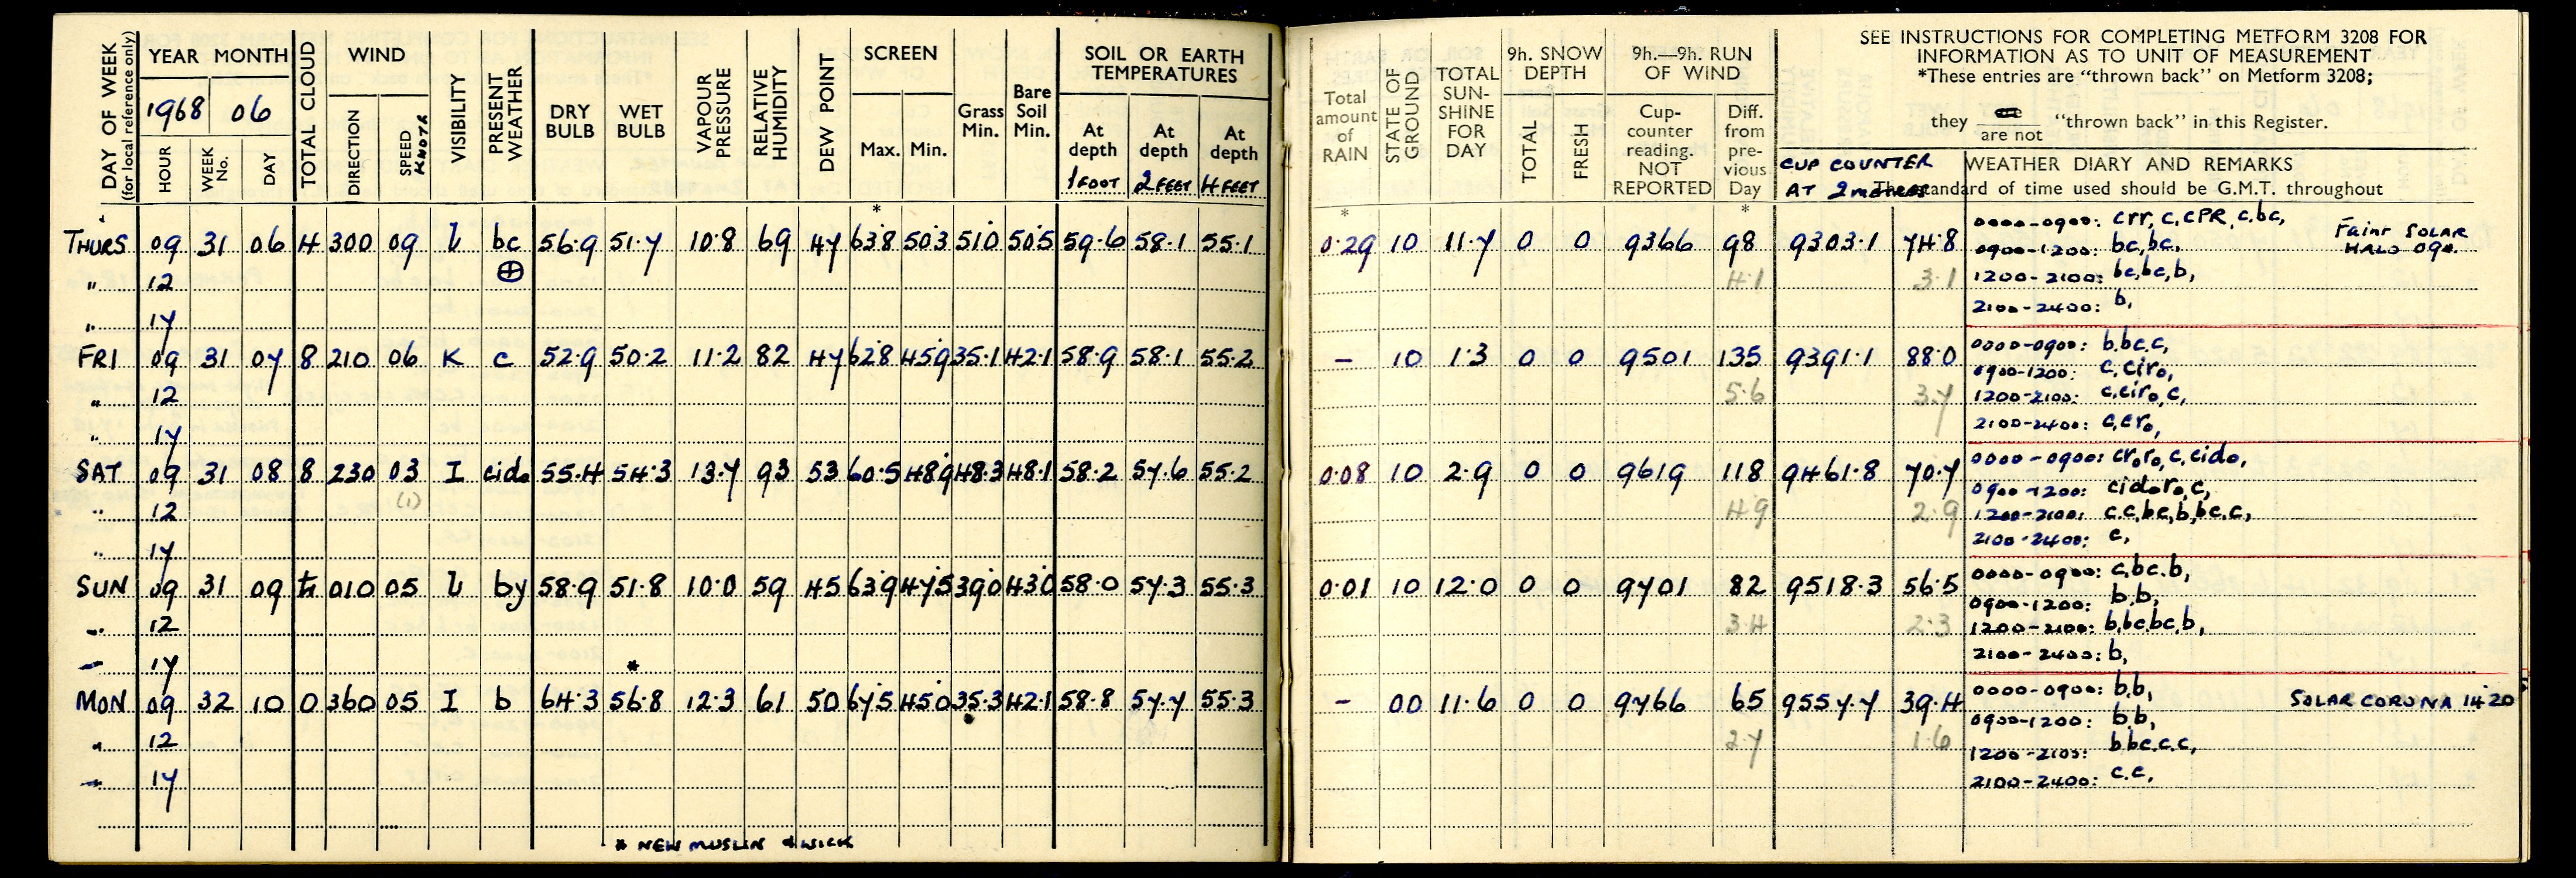 DAY OF WEEK (for local reference only)
YEAR MONTH
1968 06
HOUR WEEK No. DAY
TOTAL CLOUD
WIND
DIRECTION SPEED KNOTS
VISIBILITY
PRESENT WEATHER
DRY BULB
WET BULB
VAPOUR PRESSURE
RELATIVE HUMIDITY
DEW POINT
SCREEN
Max. Min.
Grass Min.
Bare Soil Min.
SOIL OR EARTH TEMPERATURES
At depth 1 FOOT
At depth 2 FEET
At depth 4 FEET
Total amount of RAIN
STATE OF GROUND
TOTAL SUN-SHINE FOR DAY
9h. SNOW DEPTH
TOTAL FRESH
9h.—9h. RUN OF WIND
Cup-counter reading. NOT REPORTED
Diff. from pre-vious Day
SEE INSTRUCTIONS FOR COMPLETING METFORM 3208 FOR
INFORMATION AS TO UNIT OF MEASUREMENT
*These entries are "thrown back" on Metform 3208;
they are not "thrown back" in this Register.
CUP COUNTER
AT 2 metres
WEATHER DIARY AND REMARKS
The standard of time used should be G.M.T. throughout
* * *
THURS 09 31 06 4 300 09 l bc 56.9 51.7 10.8 69 47 63.8 50.3 51.0 50.5 59.6 58.1 55.1 0.29 10 11.7 0 0 9366 98 9303.1 74.8 0000-0900: crr, c, cPR, c,bc, Faint SOLAR
0900-1200: bc,bc, HALO 09.
" 12 ⊕ 4.1 3.1 1200-2100: bc,bc,b,
2100-2400: b,
" 17
FRI 09 31 07 8 210 06 K c 52.9 50.2 11.2 82 47 62.8 45.9 35.1 42.1 58.9 58.1 55.2 – 10 1.3 0 0 9501 135 9391.1 88.0 0000-0900: b,bc,c,
0900-1200: c,ciro,
" 12 5.6 3.7 1200-2100: c,ciro,c,
2100-2400: c,cro,
" 17
SAT 09 31 08 8 230 03 I cido 55.4 54.3 13.7 93 53 60.5 48.9 48.3 48.1 58.2 57.6 55.2 0.08 10 2.9 0 0 9619 118 9461.8 70.7 0000-0900: croro,c,cido,
(1) 0900-1200: cidoro,c,
" 12 4.9 2.9 1200-2100: c,c,bc,b,bc,c,
2100-2400: c,
" 17
SUN 09 31 09 010 05 l by 58.9 51.8 10.0 59 45 63.9 47.5 39.0 43.0 58.0 57.3 55.3 0.01 10 12.0 0 0 9701 82 9518.3 56.5 0000-0900: c,bc,b,
0900-1200: b,b,
" 12 3.4 2.3 1200-2100: b,bc,bc,b,
2100-2400: b,
" 17 *
MON 09 32 10 0 360 05 I b 64.3 56.8 12.3 61 50 67.5 45.0 35.3 42.1 58.8 57.7 55.3 – 00 11.6 0 0 9766 65 9557.7 39.4 0000-0900: b,b, SOLAR CORONA 14 20
0900-1200: b,b,
" 12 2.7 1.6 1200-2100: b,bc,c,c,
" 17 2100-2400: c,c,
* NEW MUSLIN & WICK